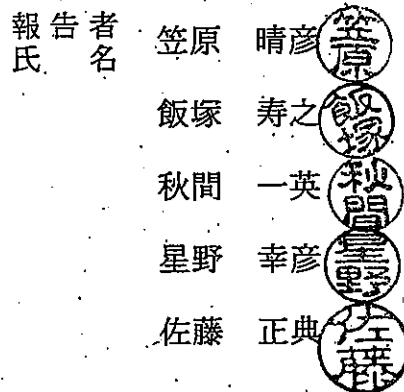 報告者
氏名
笠原 晴彦 笠原
飯塚 寿之 飯塚
秋間 一英 秋間
星野 幸彦 星野
佐藤 正典 佐藤